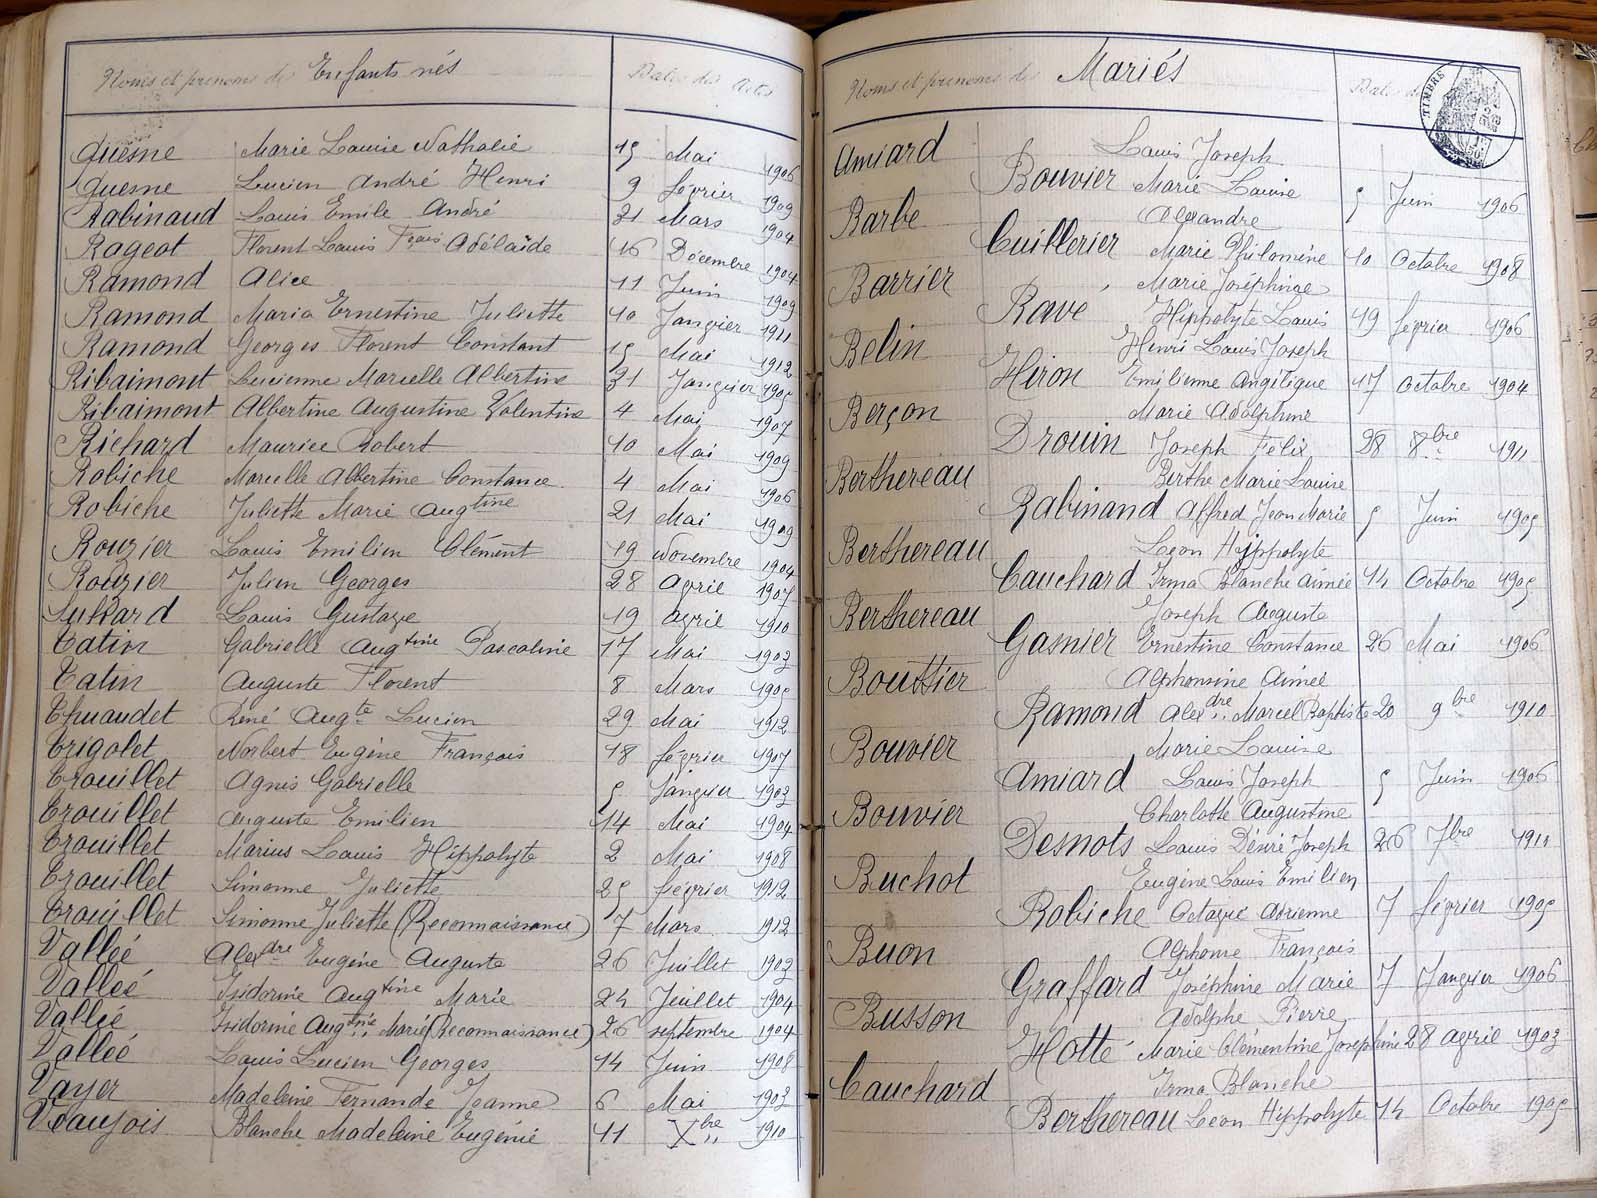 Noms et prénoms des Enfants nés Dates des Actes
Quesne Marie Louise Nathalie 15 Mai 1906
Quesne Lucien André Henri 9 février 1909
Rabinaud Louis Emile André 31 Mars 1904
Rageot Florent Louis Fçois Adélaïde 16 Décembre 1904
Ramond Alice 11 Juin 1909
Ramond Maria Ernestine Juliette 10 Janvier 1911
Ramond Georges Florent Constant 15 Mai 1912
Ribaimont Lucienne Marcelle Albertine 31 Janvier 1905
Ribaimont Albertine Augustine Valentine 4 Mai 1907
Richard Maurice Robert 10 Mai 1909
Robiche Marcelle Albertine Constance 4 Mai 1906
Robiche Juliette Marie Augtine 21 Mai 1909
Rouzier Louis Emilien Clément 19 Novembre 1904
Rouzier Julien Georges 28 avril 1907
Louis Gustave 19 avril 1910
Tatin Gabrielle Augtine Pascaline 17 Mai 1903
Tatin Auguste Florent 8 Mars 1905
Thuaudet René Augte Lucien 29 Mai 1912
Trigolet Norbert Eugène François 18 février 1907
Trouillet Agnis Gabrielle 5 Janvier 1903
Trouillet Auguste Emilien 14 Mai 1904
Trouillet Marius Louis Hippolyte 2 Mai 1908
Trouillet Simonne Juliette 25 février 1912
Trouillet Simonne Juliette (Reconnaissance) 7 Mars 1912
Valleé Alexdre Eugène Auguste 26 Juillet 1903
Valleé Isidorine Augtine Marie 24 Juillet 1904
Valleé Isidorine Augtine Marie (Reconnaissance) 26 septembre 1904
Valleé Louis Lucien Georges 14 Juin 1908
Vayer Madeleine Fernande Jeanne 6 Mai 1903
Veaujois Blanche Madeleine Eugénie 11 Xbre 1910
Noms et prénoms des Mariés Dates des
TIMBRE
Amiard Louis Joseph
Bouvier Marie Louise 5 Juin 1906
Barbe Alexandre
Cuillerier Marie Philomène 10 Octobre 1908
Barrier Marie Joséphine
Rave Hippolyte Louis 19 février 1906
Belin Henri Louis Joseph
Hiron Emilienne Angélique 17 Octobre 1904
Berçon Marie Adolphine
Drouin Joseph Félix 28 8bre 1911
Berthereau Berthe Marie Louise
Rabinand Alfred Jean Marie 5 Juin 1905
Berthereau Leon Hyppolyte
Cauchard Irma Blanche Aimée 14 Octobre 1905
Berthereau Joseph Auguste
Gasnier Ernestine Constance 26 Mai 1906
Bouttier Alphonsine Aimée
Ramond Alexdre Marcel Baptiste 20 9bre 1910
Bouvier Marie Louise
Amiard Louis Joseph 5 Juin 1906
Bouvier Charlotte Augustine
Desnots Louis Désiré Joseph 26 7bre 1910
Buchot Eugène Louis Emilien
Robiche Octavie Adrienne 7 février 1905
Buon Alphonse François
Graffard Joséphine Marie 7 Janvier 1906
Busson Adolphe Pierre
Hotté Marie Clémentine Josephine 28 avril 1903
Cauchard Irma Blanche
Berthereau Leon Hippolyte 14 Octobre 1905